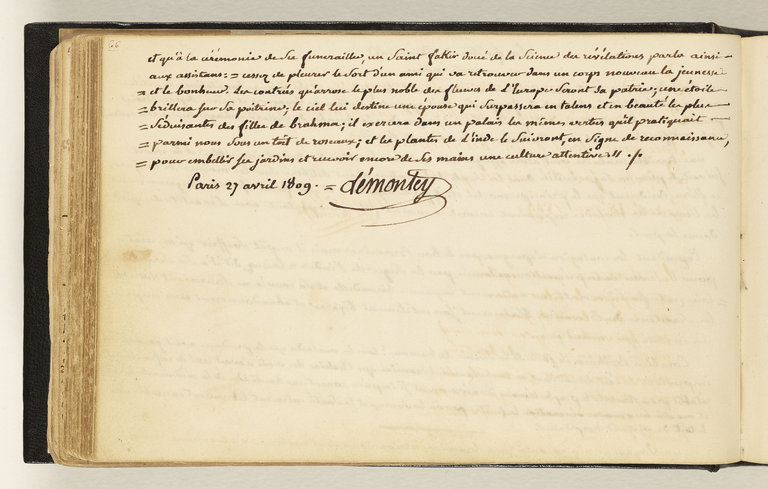 66
et qu'à la cérémonie de ses funerailles, un Saint fakir doué de la Science des révélations parla ainsi -
aux assistans: = cessez de pleurer le Sort d'un ami qui va retrouver dans un corps nouveau la jeunesse
= et le bonheur. Les contrées qu'arrose le plus noble des fleuves de L'Europe Seront Sa patrie; une étoile
= brillera sur Sa poitrine; le ciel lui destine une épouse qui Surpassera en talens et en beauté les plus -
= Séduisantes des filles de brahma; il exercera dans un palais les mêmes vertus qu'il pratiquait -
= parmi nous Sous un toit de roseaux; et les plantes de L'inde le Suivront, en Signe de reconnaissance,
= pour embellir Ses jardins et recevoir encore de Ses mains une culture attentive "./.
Paris 27 avril 1809. = démontey